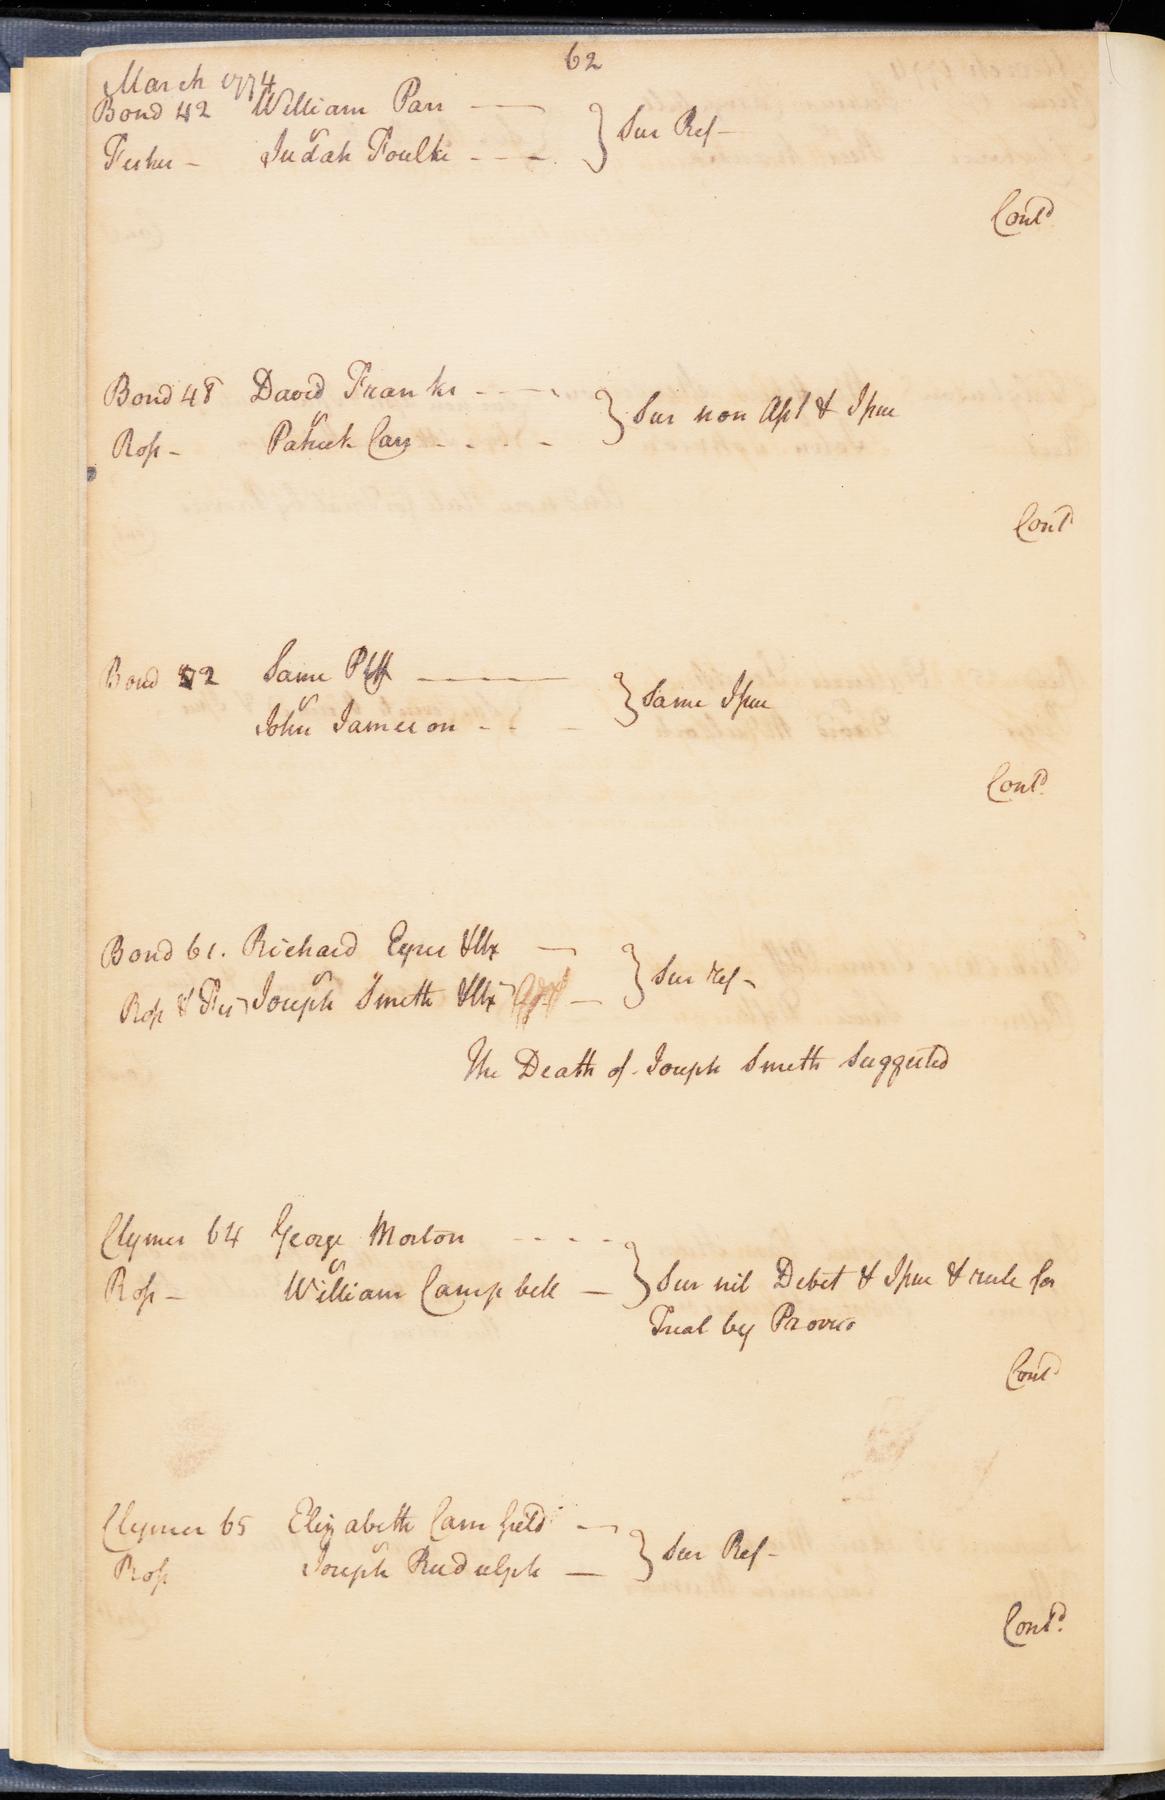 62
March 1774
Bond 42 William Parr
v
Fisher - Judah Foulke } Sur Ref -
Contd
Bond 48 David Franks
v
Ross - Patrick Carr } Sur non Asst & Issue
Contd
Bond 52 Same Plff
v
John Jameson } Same Issue
Contd.
Bond 61. Richard Eyres & Ux
v
Ross & Fis Joseph Smith & Ux } Sur ref -
The Death of Joseph Smith Suggested
Clymer 64 George Morton
v
Ross - William Campbell } Sur nil Debet & Issue & rule for
Trial by Proviso
Contd
Clymer 65 Elizabeth Camfield
v
Ross Joseph Rudulph } Sur Ref -
Contd.